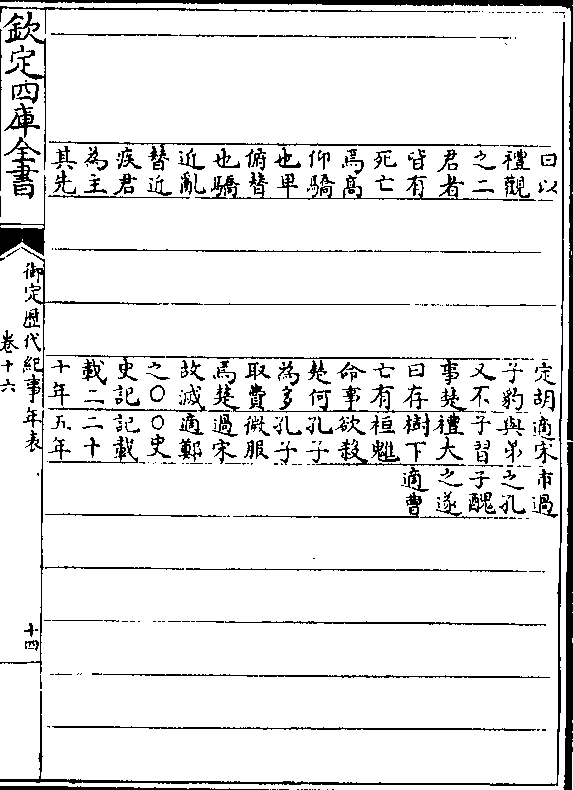 欽定四庫全書
曰以
禮觀
之二
君者
皆有
死亡
焉高
仰驕
也卑
俯替
也驕
近亂
替近
疾君
為主
其先
定胡
子豹
又不
事楚
曰存
亡有
命事
楚何
為多
取費
焉楚
故滅
之〇
史記
載二
十年
適宋
與弟
子習
禮大
樹下
桓魋
欲殺
孔子
孔子
微服
過宋
適鄭
〇史
記載
二十
五年
市過
之孔
子醜
之遂
適曹
御定歷代紀事年表
卷十六
十四